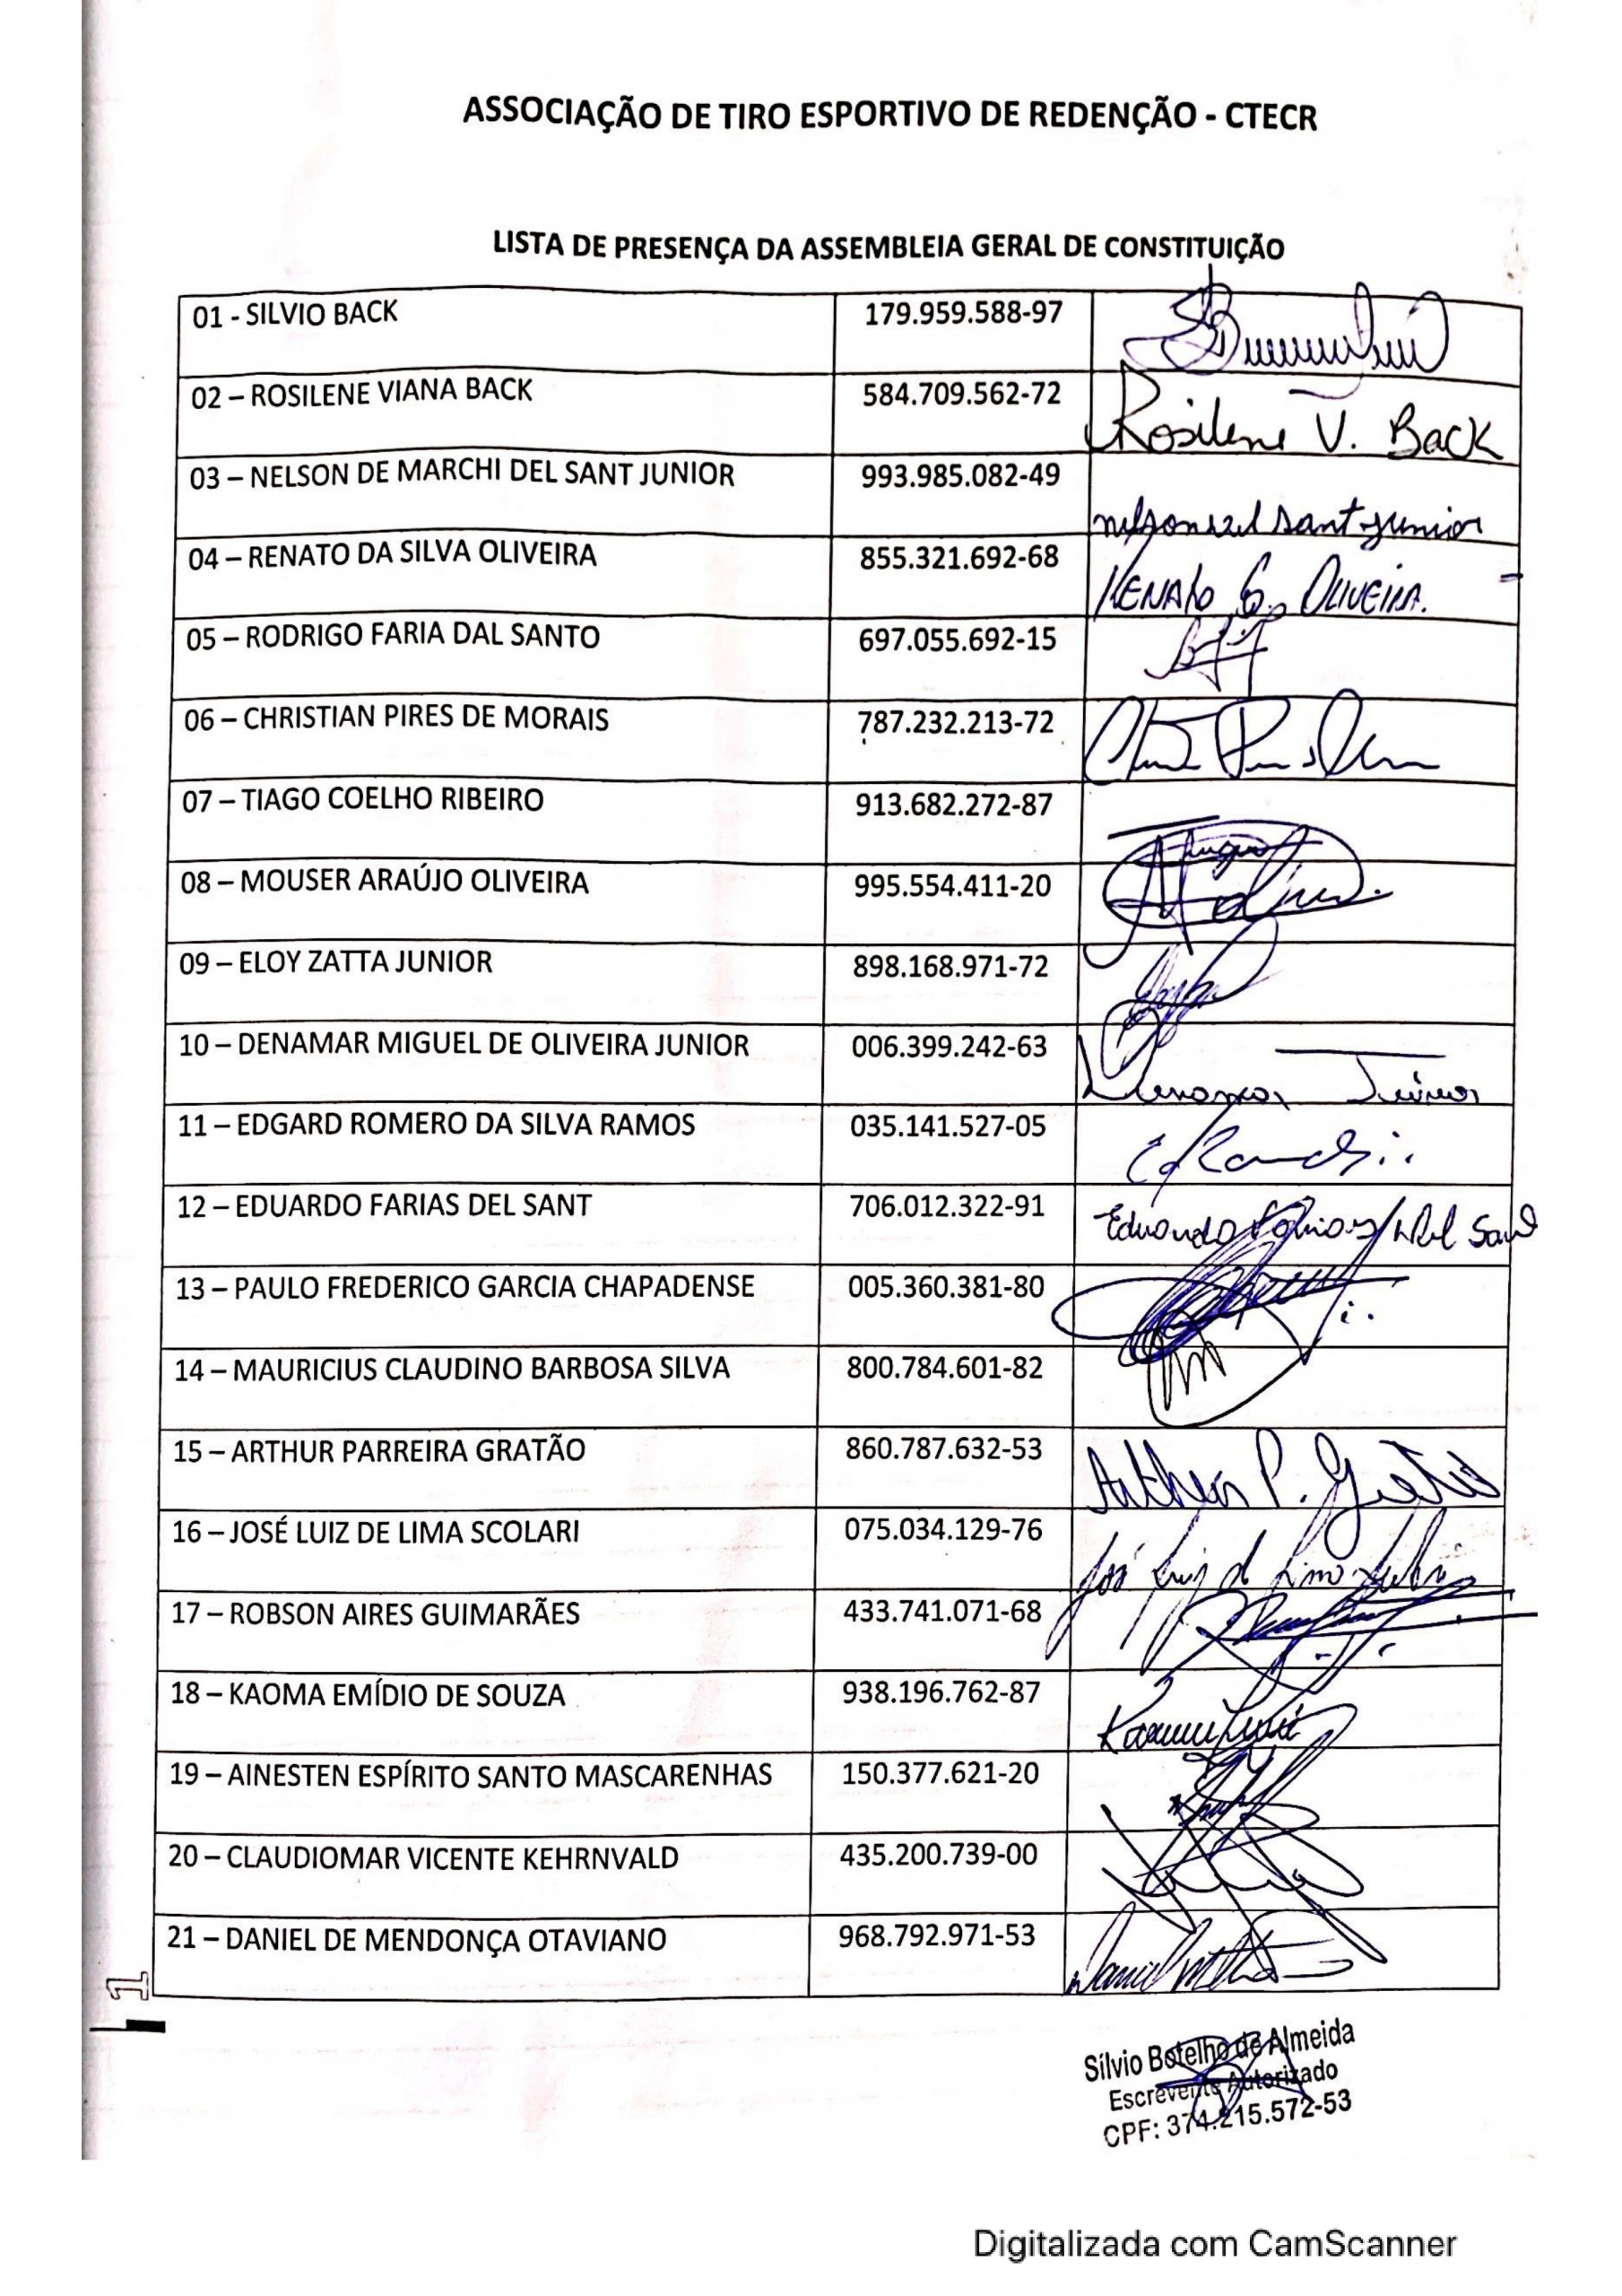 ASSOCIAÇÃO DE TIRO ESPORTIVO DE REDENÇÃO - CTECR
LISTA DE PRESENÇA DA ASSEMBLEIA GERAL DE CONSTITUIÇÃO
01 - SILVIO BACK 179.959.588-97
02 – ROSILENE VIANA BACK 584.709.562-72 Rosilene V. Back
03 – NELSON DE MARCHI DEL SANT JUNIOR 993.985.082-49 nelson del sant junior
04 – RENATO DA SILVA OLIVEIRA 855.321.692-68 RENATO S. OLIVEIRA.
05 – RODRIGO FARIA DAL SANTO 697.055.692-15
06 – CHRISTIAN PIRES DE MORAIS 787.232.213-72
07 – TIAGO COELHO RIBEIRO 913.682.272-87
08 – MOUSER ARAÚJO OLIVEIRA 995.554.411-20
09 – ELOY ZATTA JUNIOR 898.168.971-72
10 – DENAMAR MIGUEL DE OLIVEIRA JUNIOR 006.399.242-63 Denamar Júnior
11 – EDGARD ROMERO DA SILVA RAMOS 035.141.527-05
12 – EDUARDO FARIAS DEL SANT 706.012.322-91 Eduardo Farias Del Sant
13 – PAULO FREDERICO GARCIA CHAPADENSE 005.360.381-80
14 – MAURICIUS CLAUDINO BARBOSA SILVA 800.784.601-82
15 – ARTHUR PARREIRA GRATÃO 860.787.632-53 Arthur P. Gratão
16 – JOSÉ LUIZ DE LIMA SCOLARI 075.034.129-76 José Luiz d Lima Scolari
17 – ROBSON AIRES GUIMARÃES 433.741.071-68
18 – KAOMA EMÍDIO DE SOUZA 938.196.762-87
19 – AINESTEN ESPÍRITO SANTO MASCARENHAS 150.377.621-20
20 – CLAUDIOMAR VICENTE KEHRNVALD 435.200.739-00
21 – DANIEL DE MENDONÇA OTAVIANO 968.792.971-53
1
Sílvio Botelho de Almeida
Escrevente Autorizado
CPF: 374.215.572-53
Digitalizada com CamScanner